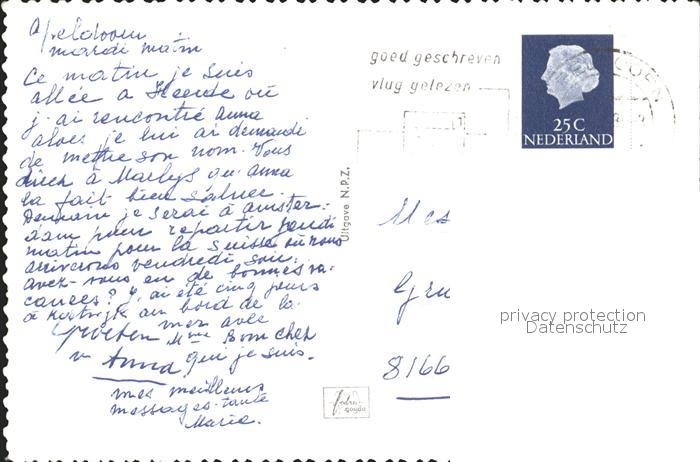 Apeldoorn
mardi matin
Ce matin je suis
allée a Heerde où
j'ai rencontré Anna
alors je lui ai demandé
de mettre son nom. Vous
direz à Marlys qu'Anna
la fait bien saluer.
Demain je serai à Amster-
dam pour repartir jeudi
matin pour la Suisse où nous
arriverons vendredi soir.
avez-vous eu de bonnes va-
cances? J'ai été cinq jours
à Kortrijk au bord de la
mer avec
Groeten Mme Bomcher
v Anna qui je suis.
mes meilleurs
messages. tante
Maria.
Uitgave N.P.Z.
fodru
gouda
goed geschreven
vlug gelezen
25 C
NEDERLAND
Mes
Gru
8166
privacy protection
Datenschutz